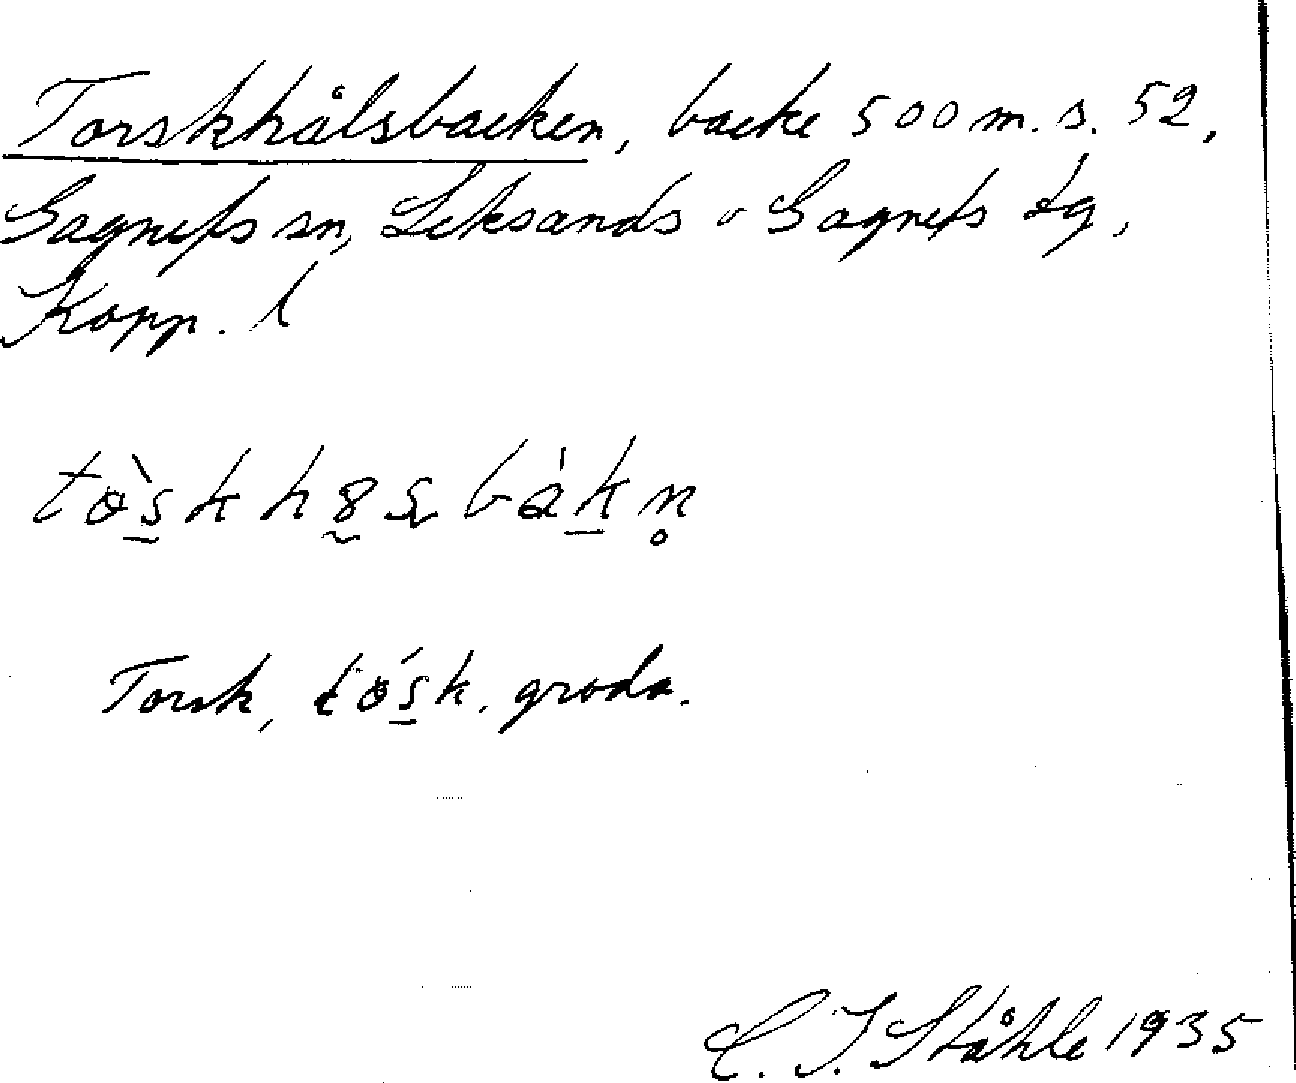 Torskhålsbacken, backe 500 m. s. 52,
Gagnefs sn, Leksands o Gagnefs tg,
Kopp. l
Torsk, groda.
C. I. Ståhle 1935